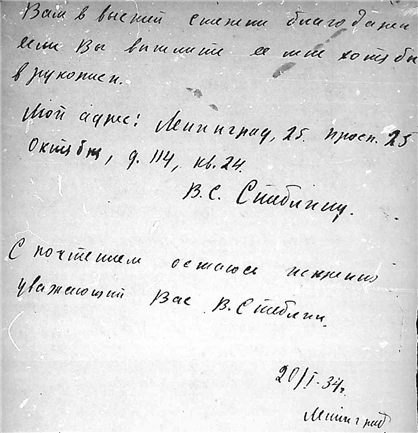 Вам в высшей степени благодарен
если Вы вышлите ее мне хотя бы
в рукописи.
Мой адрес: Ленинград, 25. просп. 25
Октября, д. 114, кв. 24.
В.С. Стеблину.
С почтением остаюсь искренно
уважающий Вас В. Стеблин.
20/I-34г.
Ленинград